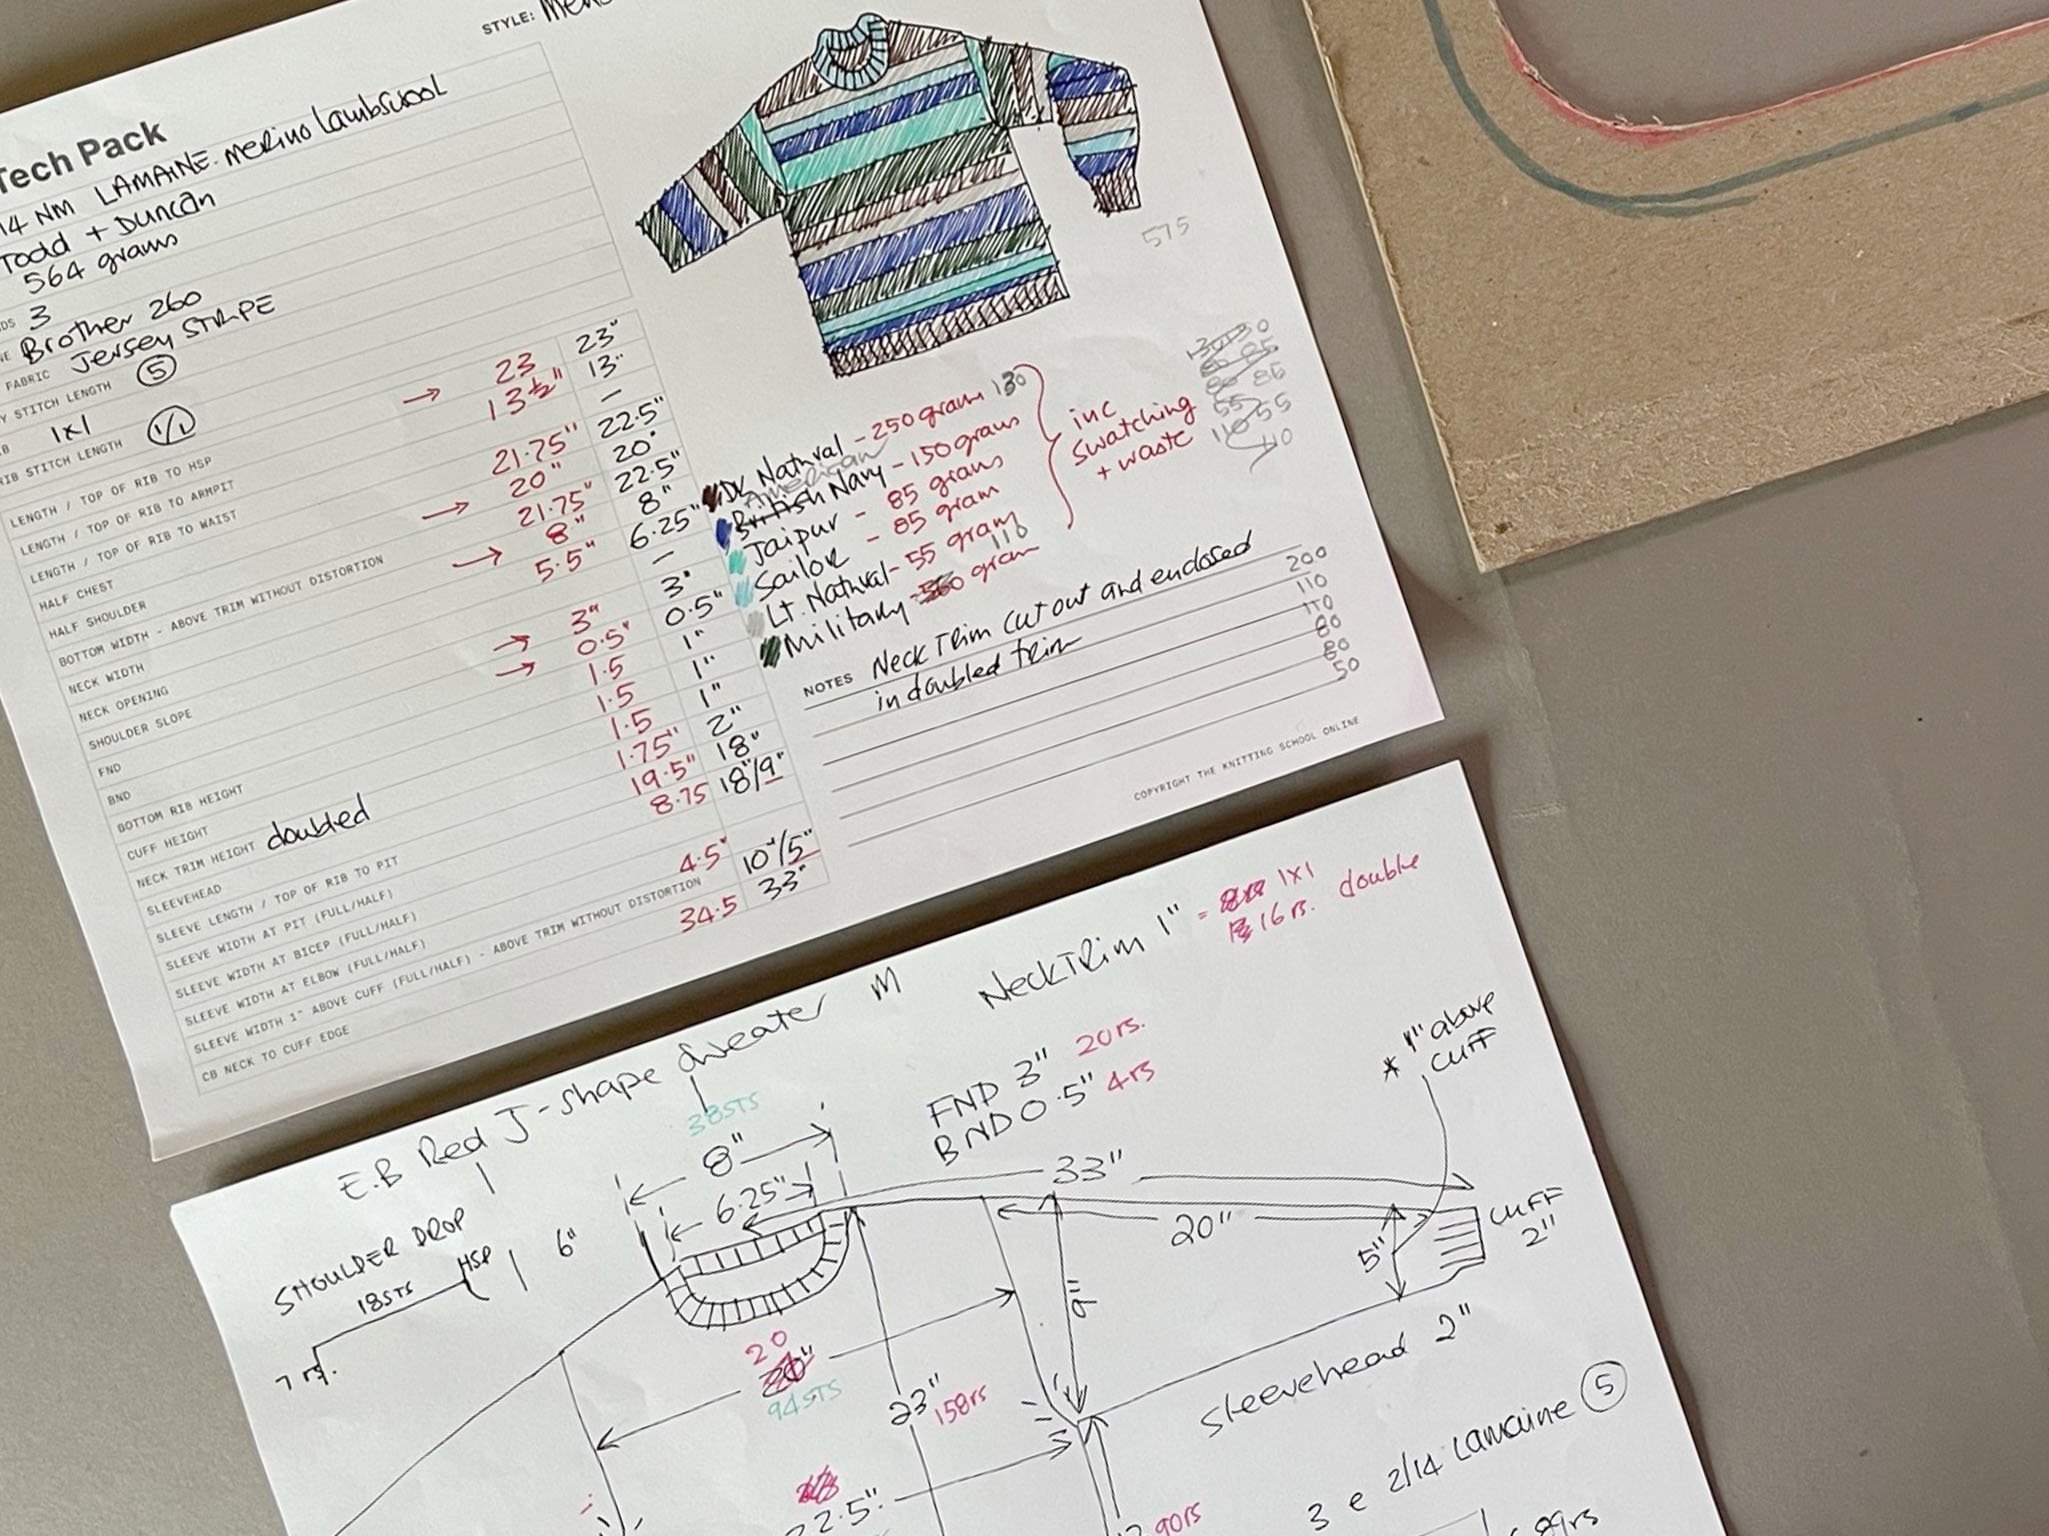 STYLE: Mens
Tech Pack
14 NM LAMAINE. Merino Lambswool
Todd + Duncan
564 grams
3
Brother 260
FABRIC Jersey STRIPE
STITCH LENGTH 5
1x1
RIB STITCH LENGTH 1/1
LENGTH / TOP OF RIB TO HSP → 23 23"
LENGTH / TOP OF RIB TO ARMPIT 13½" 13"
LENGTH / TOP OF RIB TO WAIST –
HALF CHEST 21.75" 22.5"
HALF SHOULDER → 20" 20"
BOTTOM WIDTH - ABOVE TRIM WITHOUT DISTORTION 21.75" 22.5"
NECK WIDTH → 8" 8"
NECK OPENING 5.5" 6.25"
SHOULDER SLOPE –
FND → 3" 3"
BND → 0.5" 0.5"
BOTTOM RIB HEIGHT 1.5 1"
CUFF HEIGHT 1.5 1"
NECK TRIM HEIGHT doubled 1.5 1"
SLEEVEHEAD 1.75" 2"
SLEEVE LENGTH / TOP OF RIB TO PIT 19.5" 18"
SLEEVE WIDTH AT PIT (FULL/HALF) 8.75 18"/9"
SLEEVE WIDTH AT BICEP (FULL/HALF)
SLEEVE WIDTH AT ELBOW (FULL/HALF)
SLEEVE WIDTH 1" ABOVE CUFF (FULL/HALF) - ABOVE TRIM WITHOUT DISTORTION 4.5" 10"/5"
CB NECK TO CUFF EDGE 34.5 33"
575
DK Natural - 250 gram 130
American
British Navy - 150 grams
Jaipur - 85 grams
Sailor - 85 gram
Lt. Natural - 55 gram
110
Military - gram
inc
swatching
+ waste
NOTES Neck Trim cut out and enclosed
in doubled trim
200
110
110
80
80
50
COPYRIGHT THE KNITTING SCHOOL ONLINE
E.B Red J-shape sweater M
Neck Trim 1" = 1x1
16 rs. double
38STS
FND 3" 20rs.
BND 0.5" 4rs
* 1" above
cuff
SHOULDER DROP
18STS
HSP
6"
7 rs.
8"
6.25"
33"
20"
5"
CUFF
2"
9"
20
94STS
23"
158rs
sleevehead 2"
22.5"
90rs
3 e 2/14 Lamaine 5